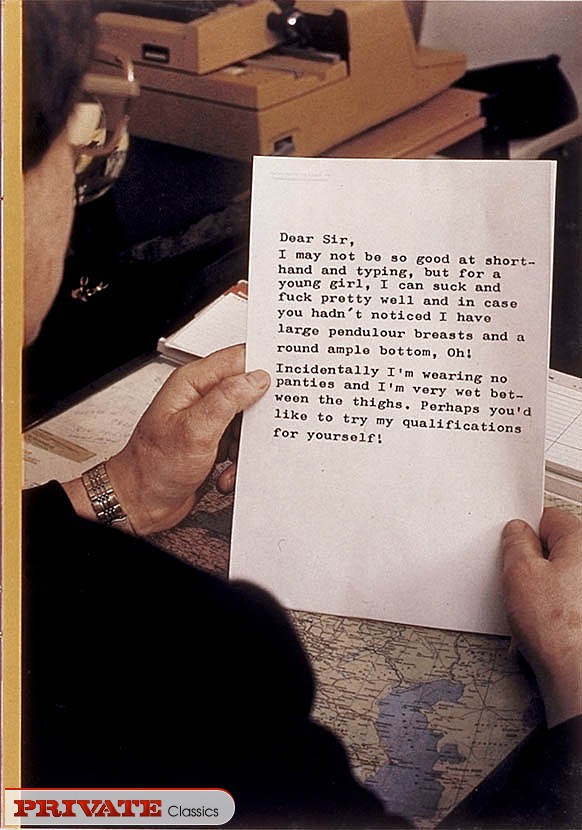 Dear Sir,
I may not be so good at short-
hand and typing, but for a
young girl, I can suck and
fuck pretty well and in case
you hadn´t noticed I have
large pendulour breasts and a
round ample bottom, Oh!
Incidentally I'm wearing no
panties and I'm very wet bet-
ween the thighs. Perhaps you'd
like to try my qualifications
for yourself!
PRIVATE Classics